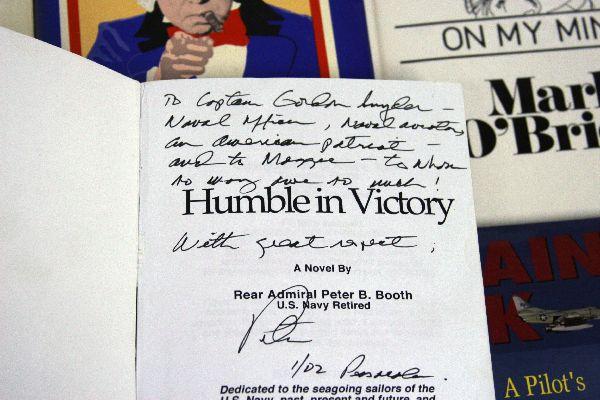 ON MY MIN
Mar
O'Bri
To Captain Gordon Snyder –
Naval Officer, Naval aviator,
an American patriot –
and to Maggie – to whom
so many owe so much!
Humble in Victory
With great respect,
A Novel By
Rear Admiral Peter B. Booth
U.S. Navy Retired
Pete
1/02 Pensacola
Dedicated to the seagoing sailors of the
U.S. Navy, past, present and future, and
AIN
K
A Pilot's